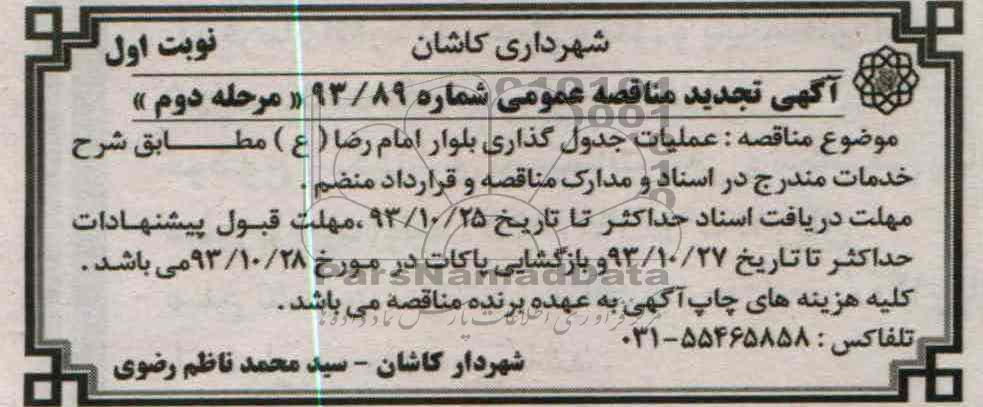 شهرداری کاشان
نوبت اول
آگهی تجدید مناقصه عمومی شماره ۹۳/۸۹ « مرحله دوم »
موضوع مناقصه : عملیات جدول گذاری بلوار امام رضا ( ع ) مطـــــابق شرح
خدمات مندرج در اسناد و مدارک مناقصه و قرارداد منضم .
مهلت دریافت اسناد حداکثر تا تاریخ ۹۳/۱۰/۲۵ ،مهلت قبول پیشنهـادات
حداکثر تا تاریخ ۹۳/۱۰/۲۷ و بازگشایی پاکات در مورخ ۹۳/۱۰/۲۸ می باشد .
ParsNamadData
کلیه هزینه های چاپ آگهی به عهده برنده مناقصه می باشد .
تلفاکس : ۵۵۴۶۵۸۵۸-۰۳۱
شهردار کاشان - سید محمد ناظم رضوی